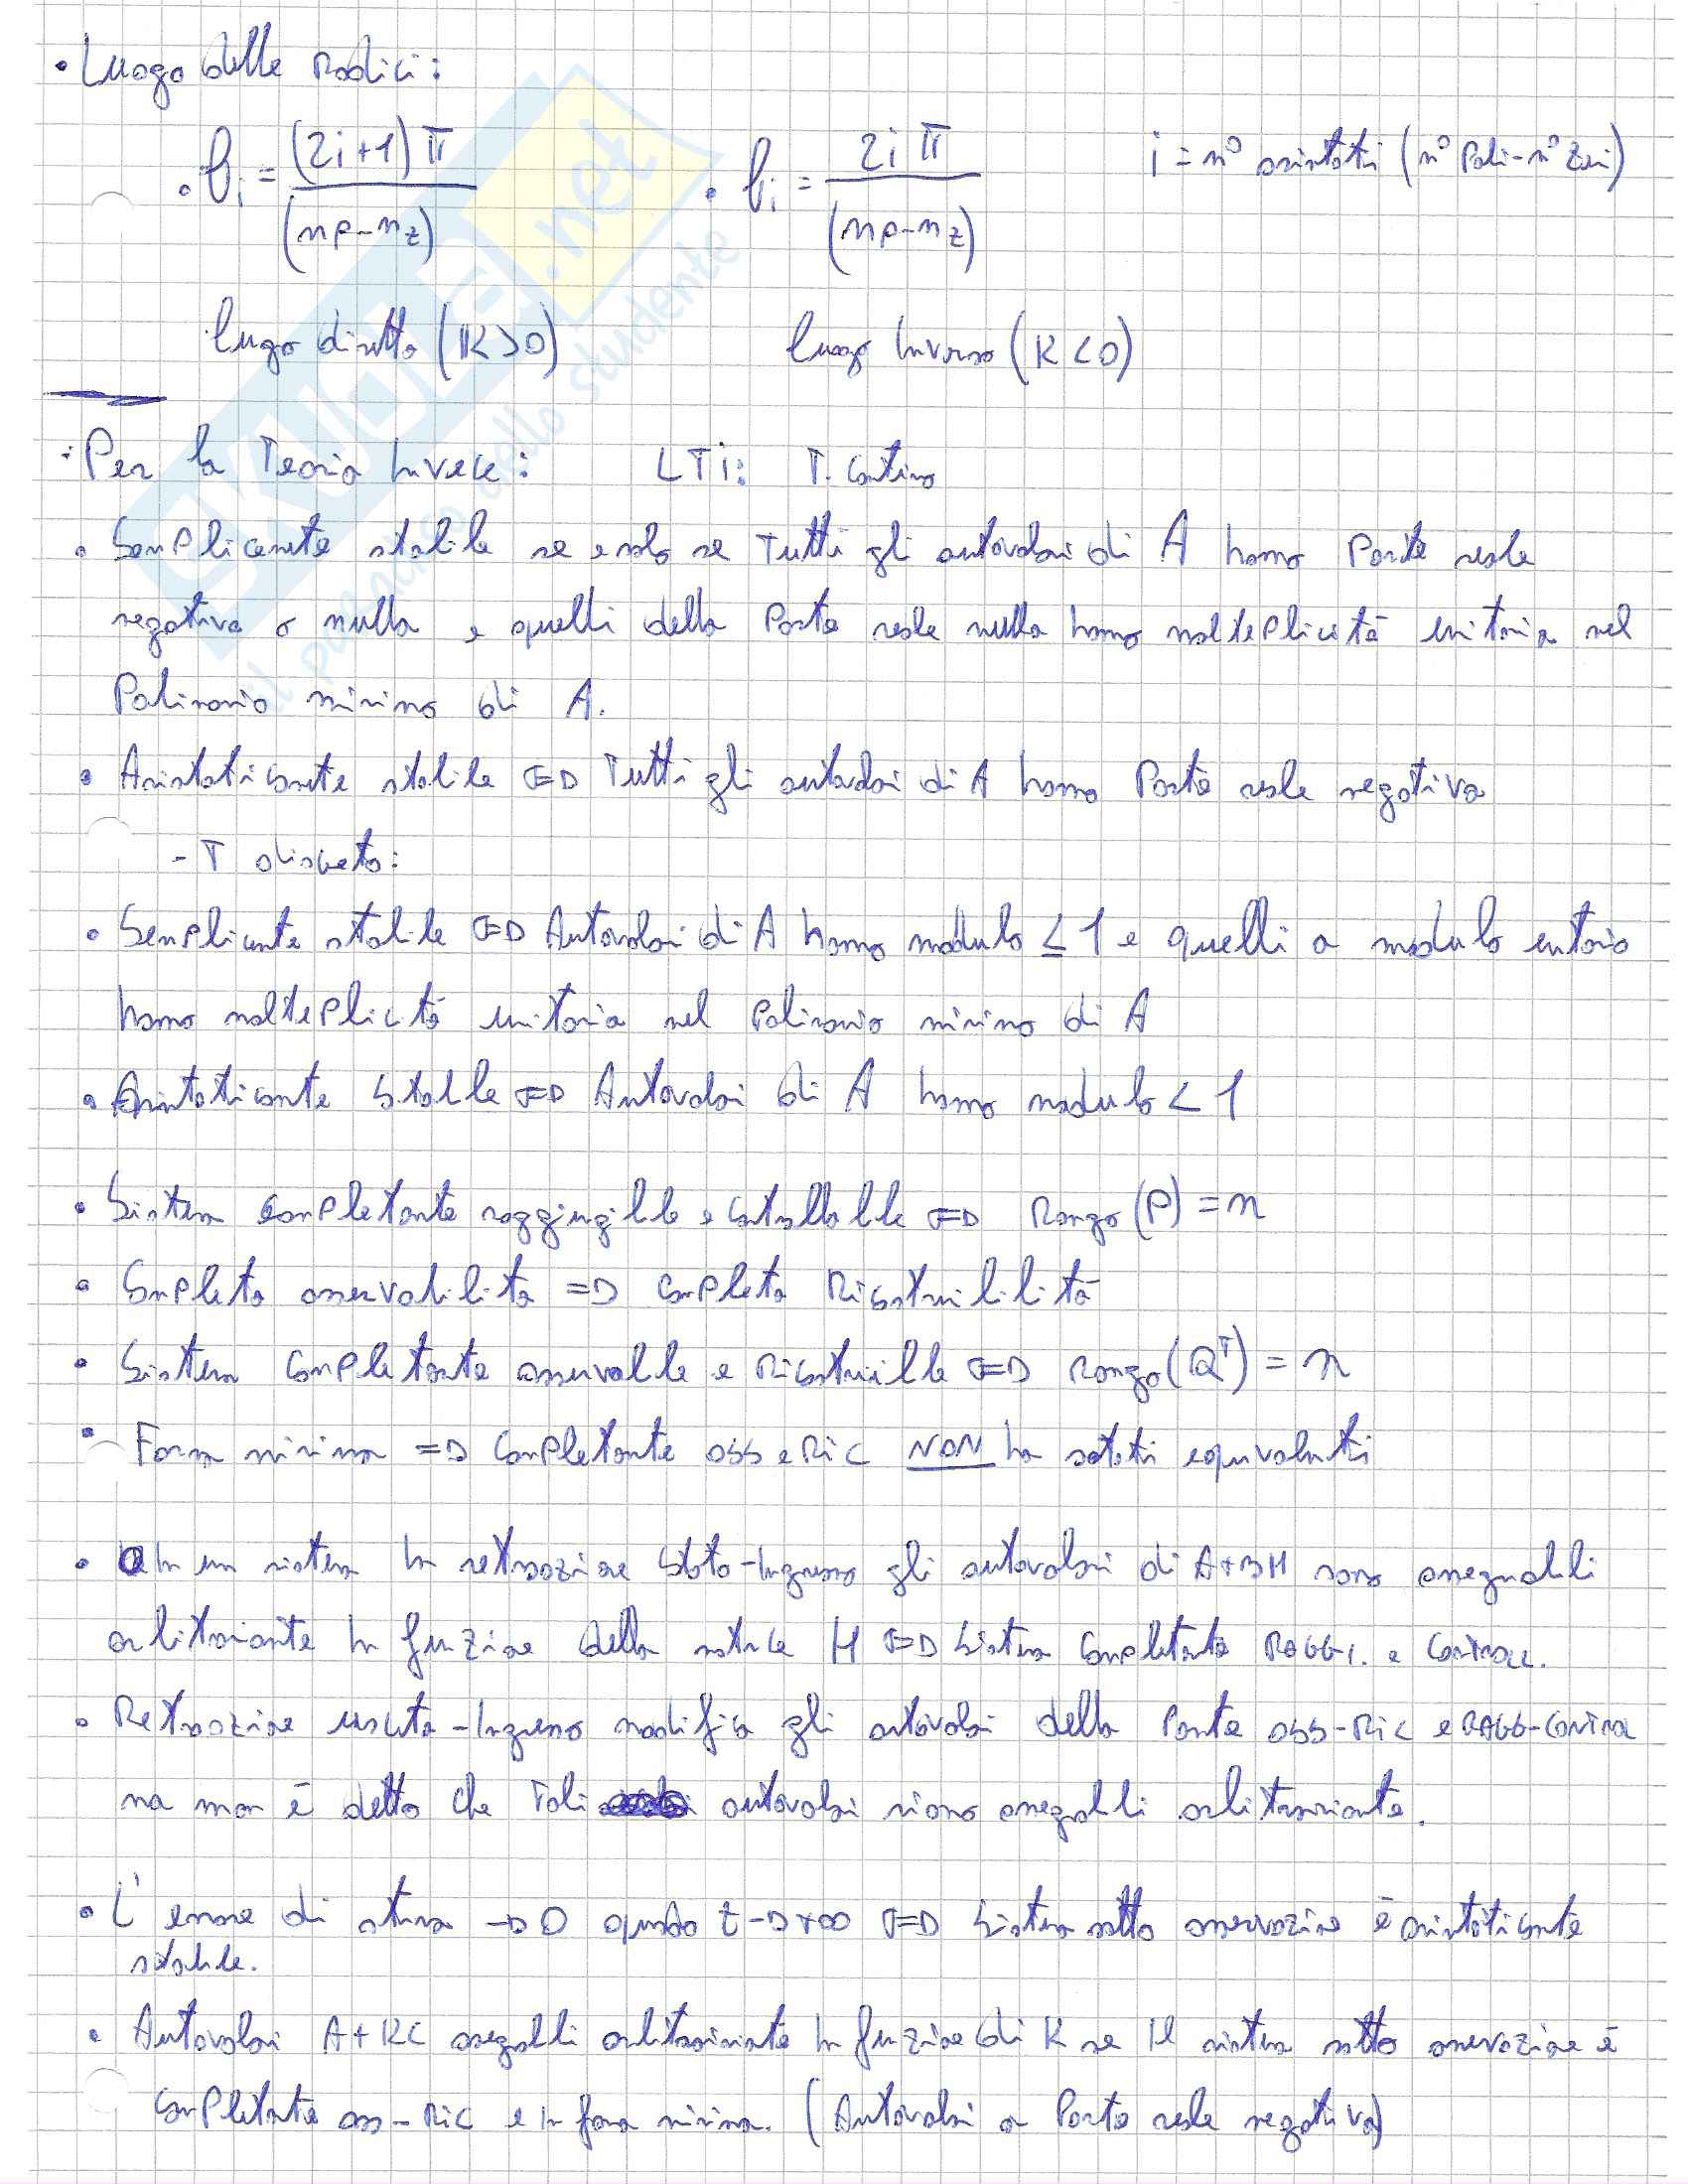 • Luogo delle Radici:
• θi = (2i+1)π / (np-nz) • θi = 2iπ / (np-nz) i = n° asintoti (n° Poli-n° Zeri)
luogo diretto (K>0) luogo Inverso (K<0)
• Per la Teoria Invece: LTi: T. Continuo
• Semplicemente stabile se e solo se Tutti gli autovalori di A hanno Parte reale
negativa o nulla e quelli della Parte reale nulla hanno molteplicità unitaria nel
Polinomio minimo di A.
• Asintoticamente stabile <=> Tutti gli autovalori di A hanno Parte reale negativa
- T discreto:
• Semplicemente stabile <=> Autovalori di A hanno modulo ≤ 1 e quelli a modulo unitario
hanno molteplicità unitaria nel Polinomio minimo di A
• Asintoticamente Stabile <=> Autovalori di A hanno modulo < 1
• Sistema completamente raggiungibile e controllabile <=> Rango(P) = n
• Completa osservabilità => completa Ricostruibilità
• Sistema completamente osservabile e Ricostruibile <=> Rango(Qᵀ) = n
• Forma minima => Completamente oss e Ric NON ha stati equivalenti
• In un sistema In retroazione Stato-Ingresso gli autovalori di A+BH sono assegnabili
arbitrariamente In funzione della matrice H <=> Sistema Completamente RAGGI. e Controll.
• Retroazione uscita-Ingresso modifica gli autovalori della Parte oss-Ric e RAGG-Control
ma non è detto che Tali autovalori siano assegnabili arbitrariamente.
• L'errore di stima → 0 quando t → +∞ <=> Sistema sotto osservazione è asintoticamente
stabile.
• Autovalori A+KC assegnabili arbitrariamente In funzione di K se Il sistema sotto osservazione è
Completamente oss-Ric e In forma minima. (Autovalori a Parte reale negativa)
SKUOLA.net
il paradiso dello studente